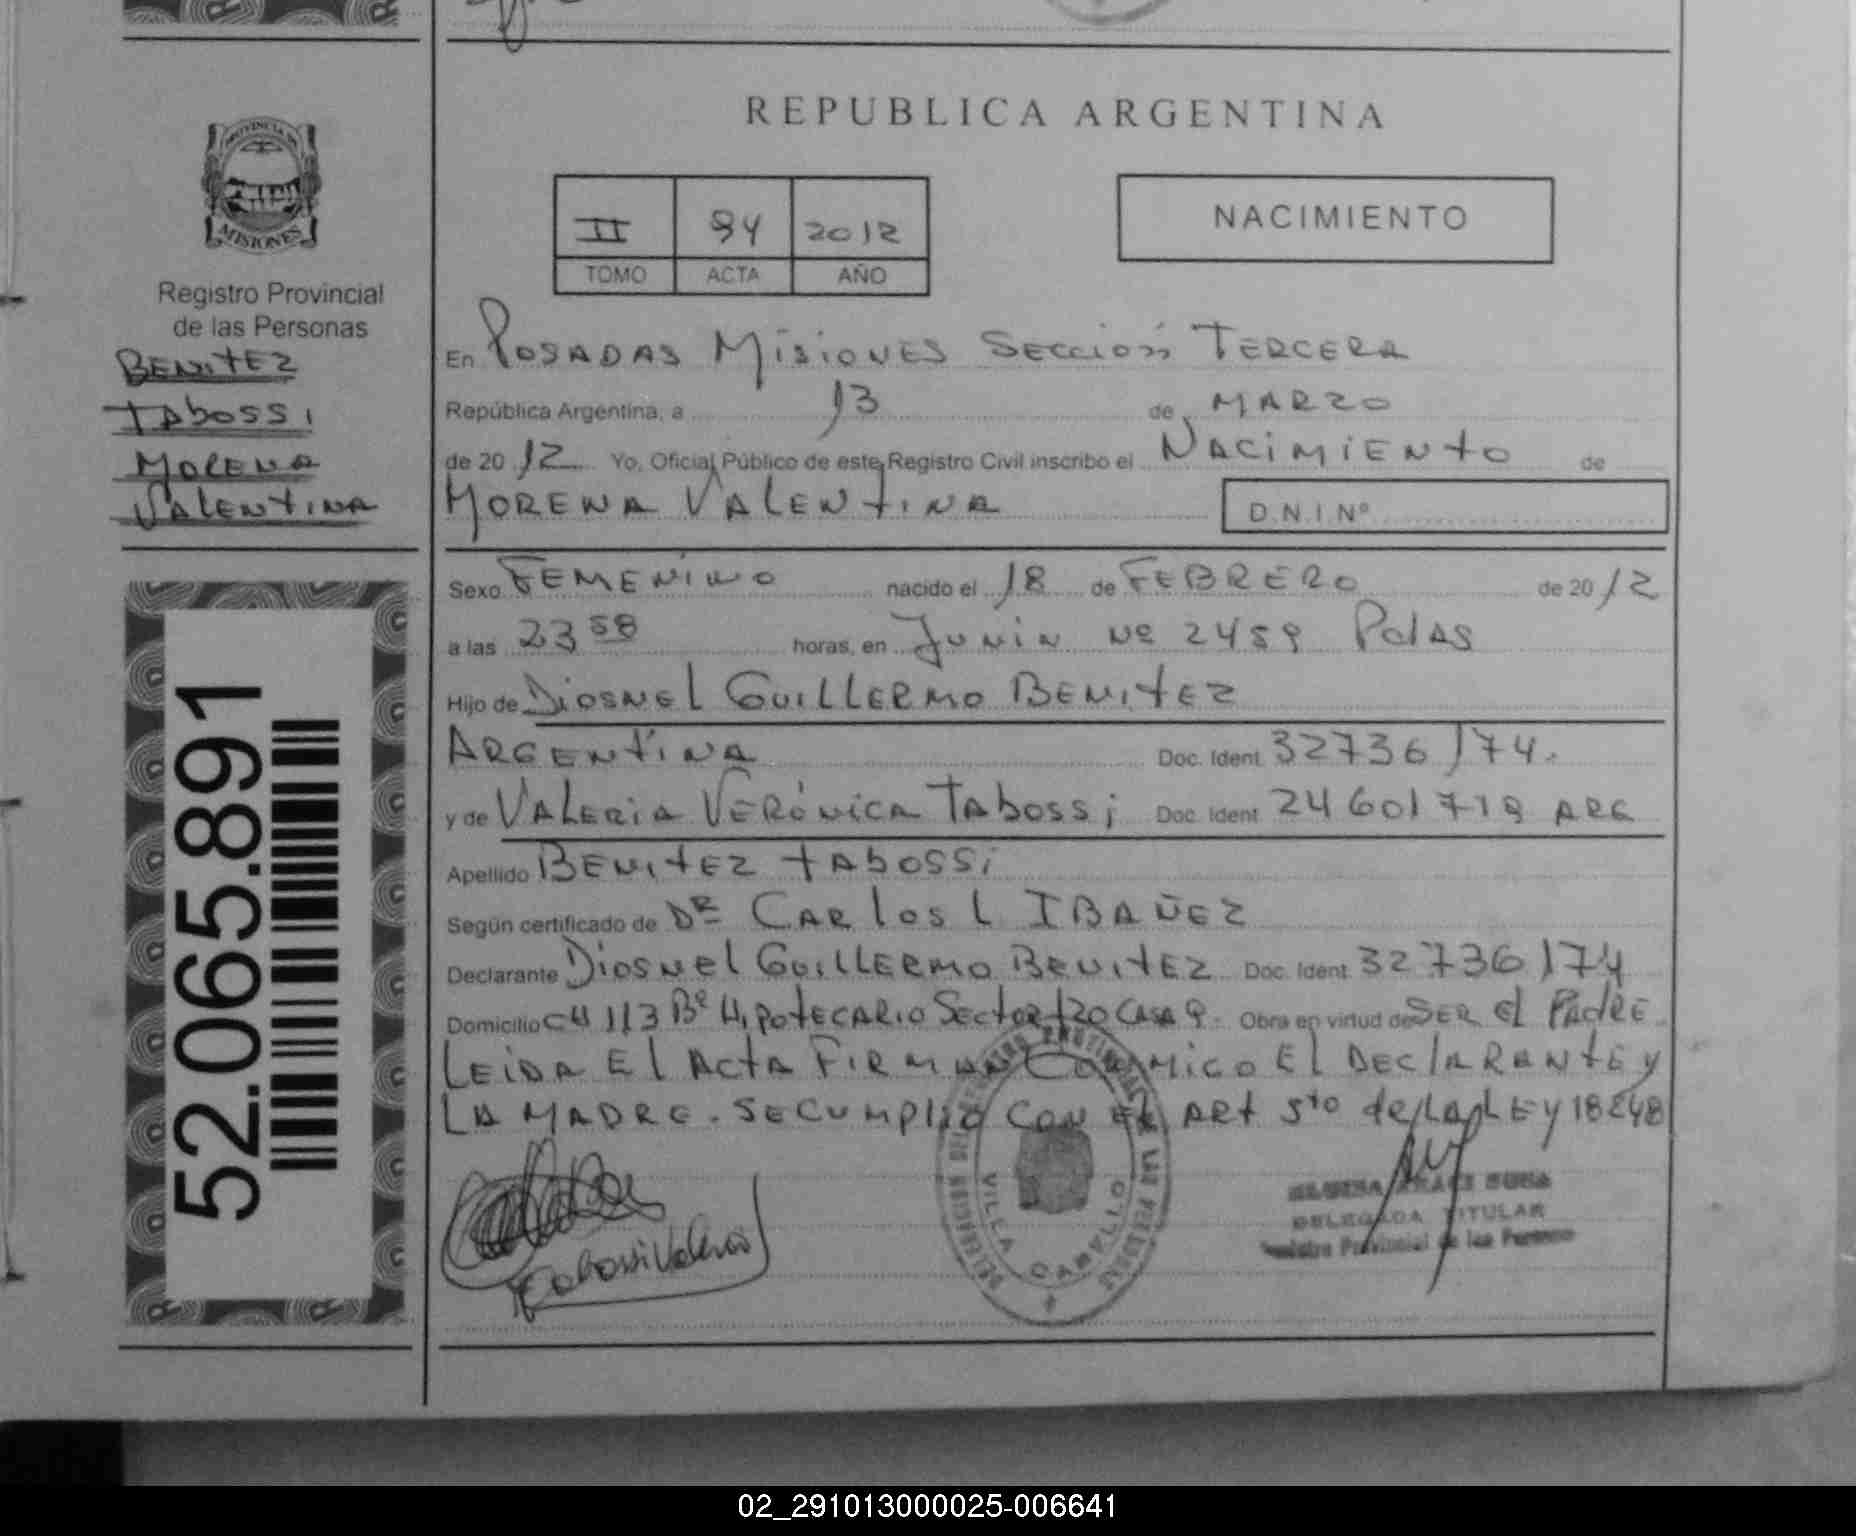 REPUBLICA ARGENTINA
PROVINCIA DE
MISIONES
Registro Provincial
de las Personas
BENITEZ
TABOSSI
MORENA
VALENTINA
52.065.891
II 94 2012
TOMO ACTA AÑO
NACIMIENTO
En POSADAS MISIONES SECCIÓN TERCERA
República Argentina, a 13 de MARZO
de 2012 Yo, Oficial Público de este Registro Civil inscribo el NACIMIENTO de
MORENA VALENTINA D.N.I.Nº
Sexo FEMENINO nacido el 18 de FEBRERO de 2012
a las 23 58 horas, en JUNIN Nº 2459 Pdas
Hijo de DIOSNEL GUILLERMO BENITEZ
ARGENTINA Doc. Ident. 32736174.
y de VALERIA VERÓNICA TABOSSI Doc. Ident. 24601719 ARG
Apellido BENITEZ TABOSSI
Según certificado de DR CARLOS L IBAÑEZ
Declarante DIOSNEL GUILLERMO BENITEZ Doc. Ident. 32736174
Domicilio CH 113 Bº HIPOTECARIO SECTOR CASA 9. Obra en virtud de SER El PADRE
LEIDA El ACTA FIRMAN CONMIGO El DECLARANTE y
LA MADRE. SE CUMPLIÓ CON EL ART 5to de LA LEY 18248
Tabossi Valeria
DELEGACION DEL REGISTRO PROVINCIAL DE LAS PERSONAS
VILLA CABELLO
DELEGADA TITULAR
Registro Provincial de las Personas
02_291013000025-006641